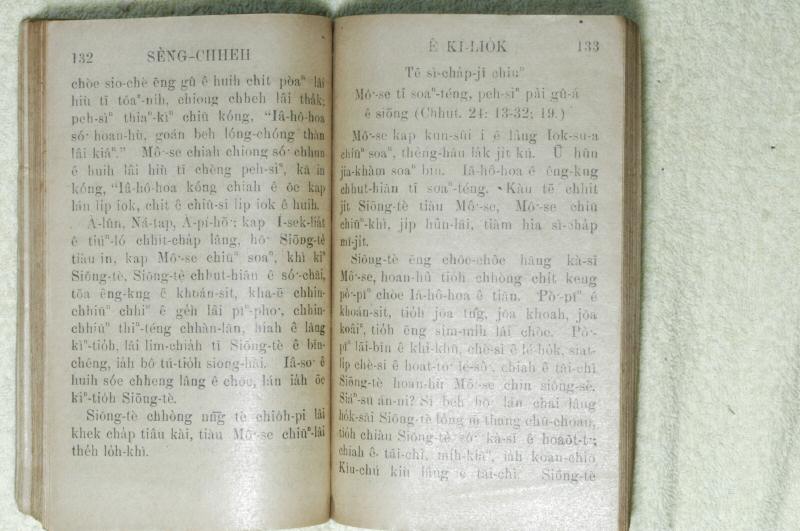 132 SÈNG-CHHEH
chòe sio-chè ēng gû ê huih chit pòaⁿ lâi
hiù tī tôaⁿ-nih, chiong chheh lâi tha̍k;
peh-sìⁿ thiaⁿ-kìⁿ chiū kóng, “Iâ-hô-hoa
só͘ hoan-hù, goán beh lóng-chóng thàn
lâi kiâⁿ.” Mô͘-se chiah chiong só͘ chhun
ê huih lâi hiù tī chèng peh-sìⁿ, kā in
kóng, “Iâ-hô-hoa kóng chiah ê ōe kap
lán li̍p iok, chit ê chiū-sī li̍p iok ê huih.
A-lûn, Ná-tap, A-pí-hō͘; kap Í-sek-lia̍t
ê tiúⁿ-ló chhit-cha̍p lâng, hō͘ Siōng-tè
tiàu in, kap Mô͘-se chiūⁿ soaⁿ, khì kìⁿ
Siōng-tè, Siōng-tè chhut-hiān ê só͘-chāi,
tōa êng-kng ê khoán-sit, kha-ē chhin-
chhiūⁿ chhiⁿ ê ge̍h lâi pìⁿ-pho͘, chhin-
chhiūⁿ thiⁿ-téng chhàn-lān, hiah ê lâng
kìⁿ-tio̍h, lâi lim-chia̍h tī Siōng-tè ê bīn-
chêng, iah bô tú-tio̍h siong-hāi. Iâ-so͘ ê
huih sóe chheng lâng ê chōe, lán iah ōe
kìⁿ-tio̍h Siōng-tè.
Siōng-tè chhòng nn̄g tè chio̍h-pi lâi
khek cha̍p tiâu kài, tiàu Mô͘-se chiūⁿ-lâi
the̍h lo̍h-khì.
Ê KI-LIO̍K 133
Tē sì-cha̍p-jī chiuⁿ
Mô͘-se tī soaⁿ-téng, peh-sìⁿ pài gû-á
ê siōng (Chhut. 24: 13-32; 19.)
Mô͘-se kap kun-sûi i ê lâng Iok-su-a
chiūⁿ soaⁿ, thèng-hāu la̍k ji̍t kú. Ū hûn
jia-khàm soaⁿ bīn. Iâ-hô-hoa ê êng-kng
chhut-hiān tī soaⁿ-téng. Kàu tē chhit
ji̍t Siōng-tè tiàu Mô͘-se, Mô͘-se chiū
chiūⁿ-khì, ji̍p hûn-lāi, tiàm hia sì-cha̍p
mî-ji̍t.
Siōng-tè ēng chōe-chōe hāng kà-sī
Mô͘-se, hoan-hù tio̍h chhòng chit keng
pò͘-pîⁿ chòe Iâ-hô-hoa ê tiān. Pò͘-pîⁿ ê
khoán-sit, tio̍h jōa tn̂g, jōa khoah, jōa
koâiⁿ, tio̍h ēng sím-mih lâi chòe. Pò͘-
pîⁿ lāi-bīn ê khì-khū, chè-si ê lé-ho̍k, siat-
li̍p chè-si ê hoat-tō͘ lé-sò͘, chiah ê tāi-chì
Siōng-tè hoan-hù Mô͘-se chin siông-sè.
Siáⁿ-sū án-ni? Sī beh hō͘ lán chai lâng
ho̍k-sāi Siōng-tè lóng m̄ thang chū-choan,
tio̍h chiàu Siōng-tè só͘ kà-sī ê hoat-tō͘;
chiah ê tāi-chì, mih-kiāⁿ, iah koan-chio
Kiù-chú kiù lâng ê tāi-chì. Siōng-tè